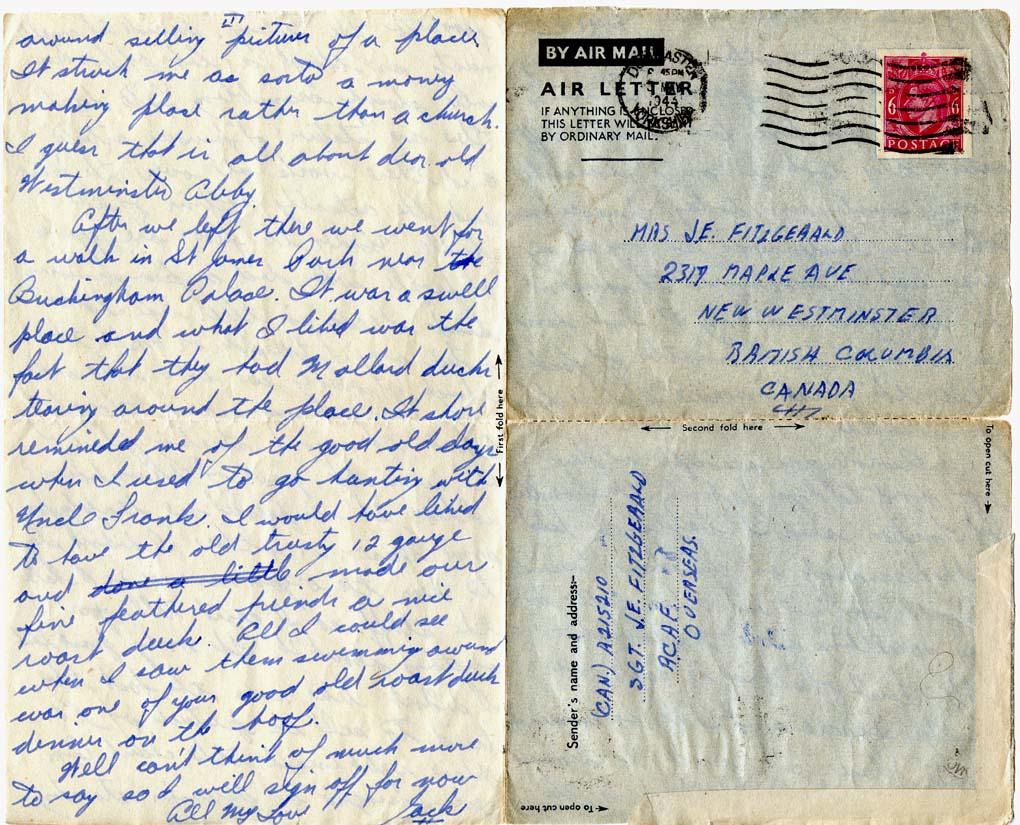 III
around selling pictures of a place
It struck me as sorta a money
making place rather than a church.
I guess that is all about dear old
Westminster Abby.
After we left there we went for
a walk in St James Park near the
Buckingham Palace. It was a swell
place and what I liked was the
fact that they had Mallard ducks
tearing around the place. It shore
reminded me of the good old days
when I used to go hunting with
Uncle Frank. I would have liked
to have the old trusty 12 gauge
and done a little made our
fine feathered friends a nice
roast duck. All I could see
when I saw them swimming around
was one of your good old roast duck
dinner on the hoof.
Well can't think of much more
to say so I will sign off for now
All My Love Jack
First fold here
BY AIR MAIL
AIR LETTER
IF ANYTHING IS ENCLOSED
THIS LETTER WILL
BY ORDINARY MAIL.
DONCASTER
45 PM
6 6
POSTAGE
MRS J.E. FITZGERALD
2317 MAPLE AVE
NEW WESTMINSTER
BRITISH COLUMBIA
CANADA
Second fold here
To open cut here
Sender's name and address:-
(CAN) A215210
SGT. J.E. FITZGERALD
R.C.A.F.
OVERSEAS.
To open cut here